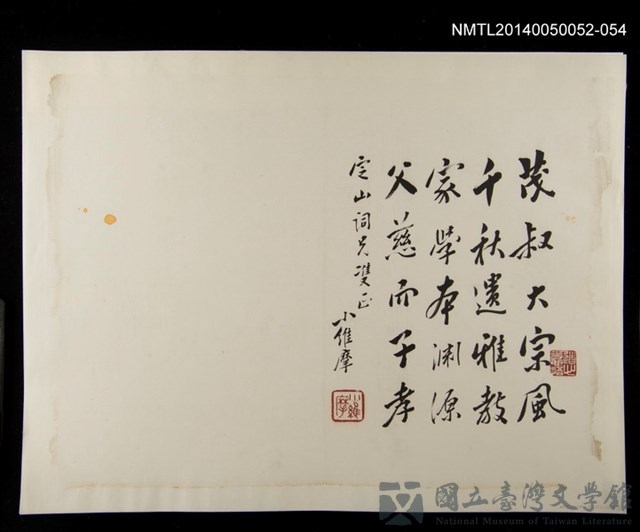 NMTL20140050052-054
茂叔大宗風
千秋遺雅教
家學本淵源
父慈而子孝
定山詞兄雙正
小維摩
小維摩
國立臺灣文學館
National Museum of Taiwan Literature